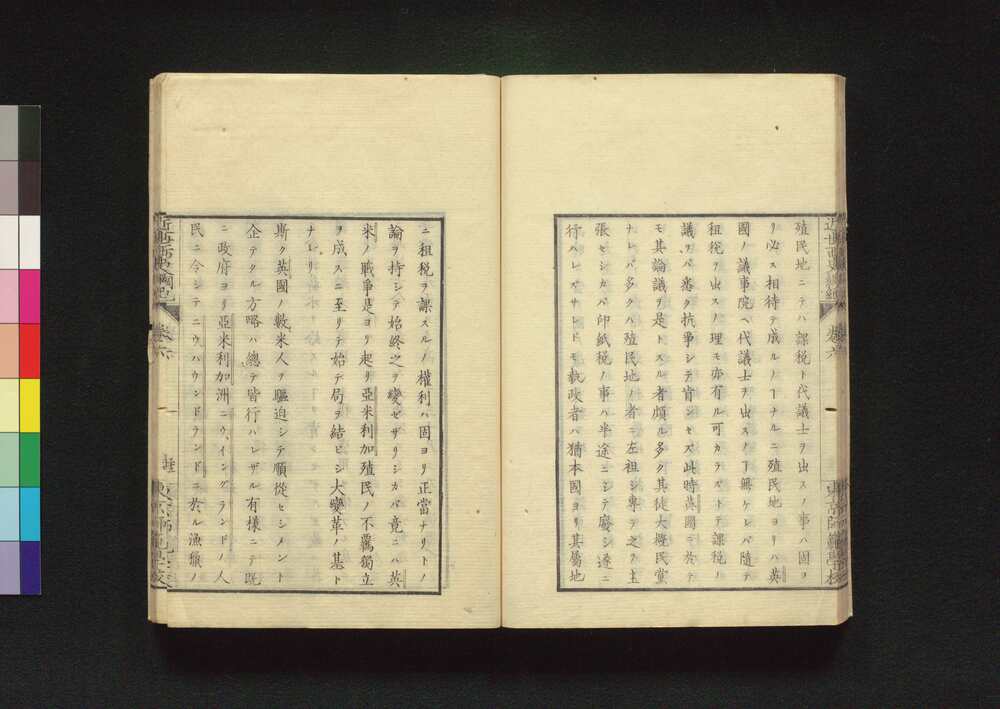 殖民地ニテハ課税ト代議士ヲ出スノ事ハ固ヨ
リ必ス相待テ成ルノヿナルニ殖民地ヨリハ英
國ノ議事院ヘ代議士ヲ出スノヿ無ケレバ隨テ
租税ヲ出スノ理モ亦有ル可カラストテ課税ノ
議ヲバ悉ク抗爭シテ肯ンセス此時英國ニ於テ
モ其論議ヲ是トスル者頗ル多ク其徒大概民黨
ナレバ多クハ殖民地ノ者ニ左袒シ專ラ之ヲ主
張セシカバ印紙税ノ事ハ半途ニシテ廢シ遂ニ
行ハレズサレドモ執政者ハ猶本國ヨリ其屬地
ニ租税ヲ課スルノ權利ハ固ヨリ正當ナリトノ
論ヲ持シテ始終之ヲ變ゼザリシカバ竟ニハ英
米ノ戰爭是ヨリ起リ亞米利加殖民ノ不羈獨立
ヲ成スニ至リテ始テ局ヲ結ビシ大變革ノ基ト
ナレリ
斯ク英國ノ數米人ヲ驅迫シテ順從セシメント
企テタル方略ハ總テ皆行ハレザル有様ニテ既
ニ政府ヨリ亞米利加洲ニウ、イングランドノ人
民ニ令シテニウハウンドランドニ於ル漁獵ノ
近世西史綱紀
卷六
東京師範學校